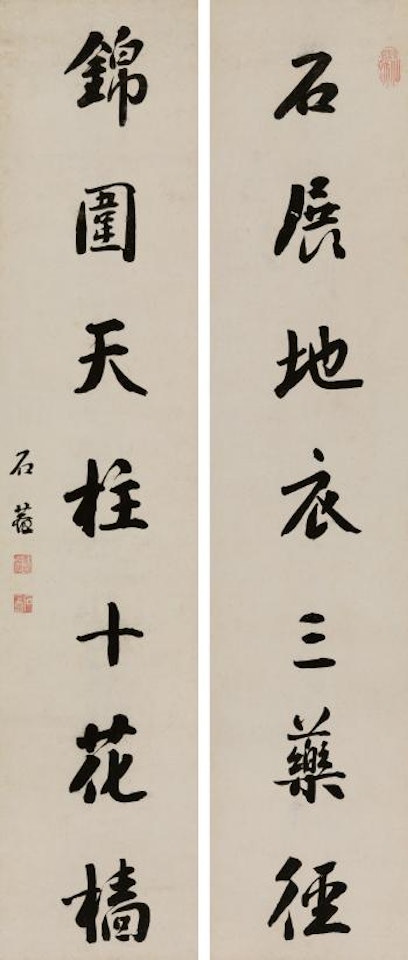 石展地衣三藥徑
錦圍天柱十花檣
石菴